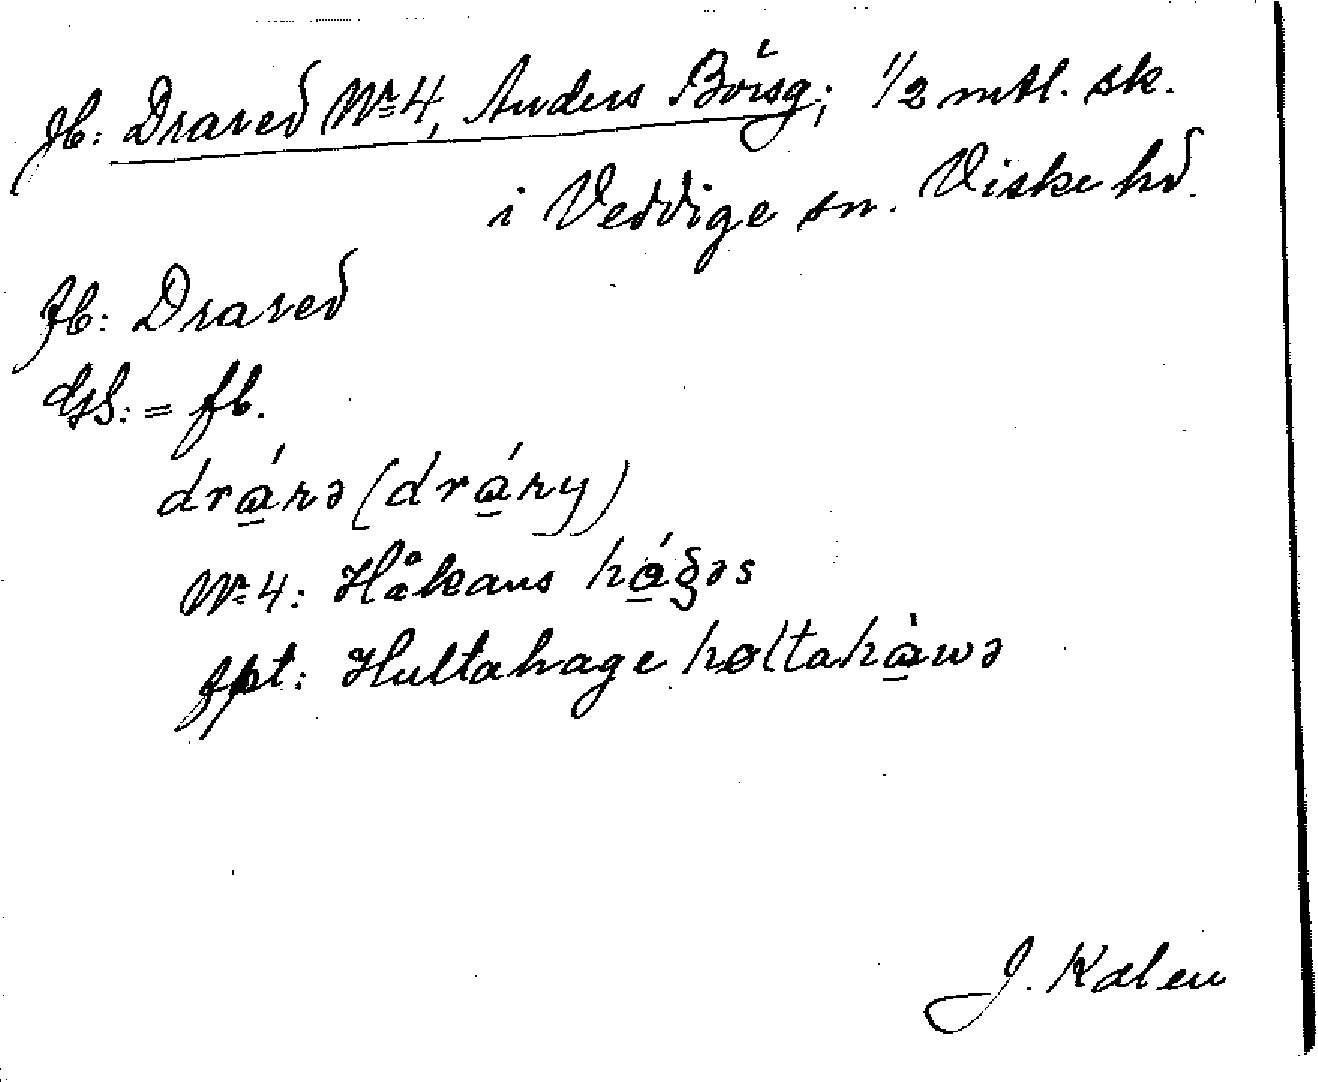 Jb: Drared No 4, Anders Börsg; 1/2 mtl. sk.
i Veddige sn. Viske hd.
fb: Drared
GS: = fb.
drá̱rə (drá̱ry)
No 4: Håkans há̱gəs
fpt: Hultahage høltahà̱wə
J. Kalen